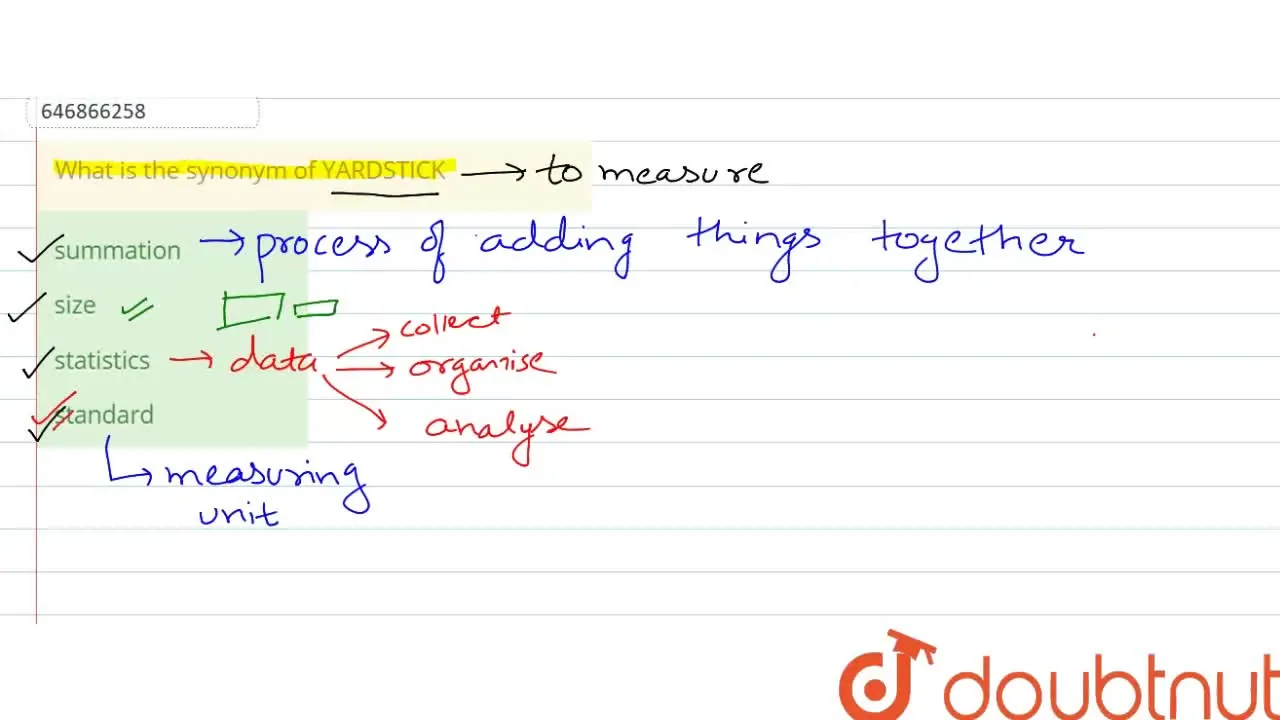 646866258
What is the synonym of YARDSTICK → to measure
summation → process of adding things together
size
collect
statistics → data → organise
analyse
standard
measuring
unit
doubtnut